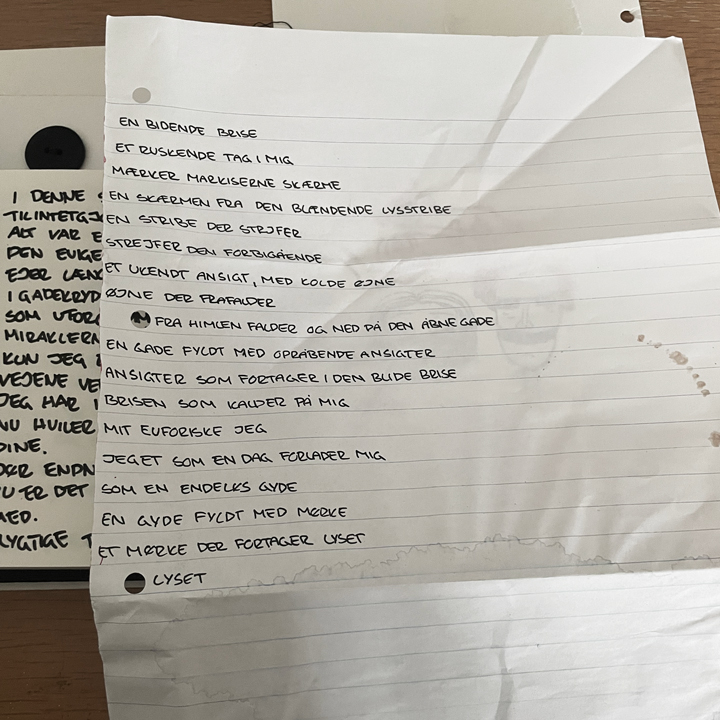 EN BIDENDE BRISE
ET RUSKENDE TAG I MIG
MÆRKER MARKISERNE SKÆRME
EN SKÆRMEN FRA DEN BLÆNDENDE LYSSTRIBE
EN STRIBE DER STREJFER
STREJFER DEN FORBIGÅENDE
ET UKENDT ANSIGT, MED KOLDE ØJNE
ØJNE DER FRAFALDER
FRA HIMLEN FALDER OG NED PÅ DEN ÅBNE GADE
EN GADE FYLDT MED OPRÅBENDE ANSIGTER
ANSIGTER SOM FORTAGER I DEN BLIDE BRISE
BRISEN SOM KALDER PÅ MIG
MIT EUFORISKE JEG
JEGET SOM EN DAG FORLADER MIG
SOM EN ENDELØS GYDE
EN GYDE FYLDT MED MØRKE
ET MØRKE DER FORTAGER LYSET
LYSET
I DENNE
TILINTETGJ
ALT VAR E
DEN EVIGE
EJER LÆNG
I GADEKRYD
SOM
MIRAKLERN
KUN JEG
VEJENE VE
JEG HAR
NU HVILER
DINE.
DER ENDN
NU ER DET
MED.
LYGTIGE T